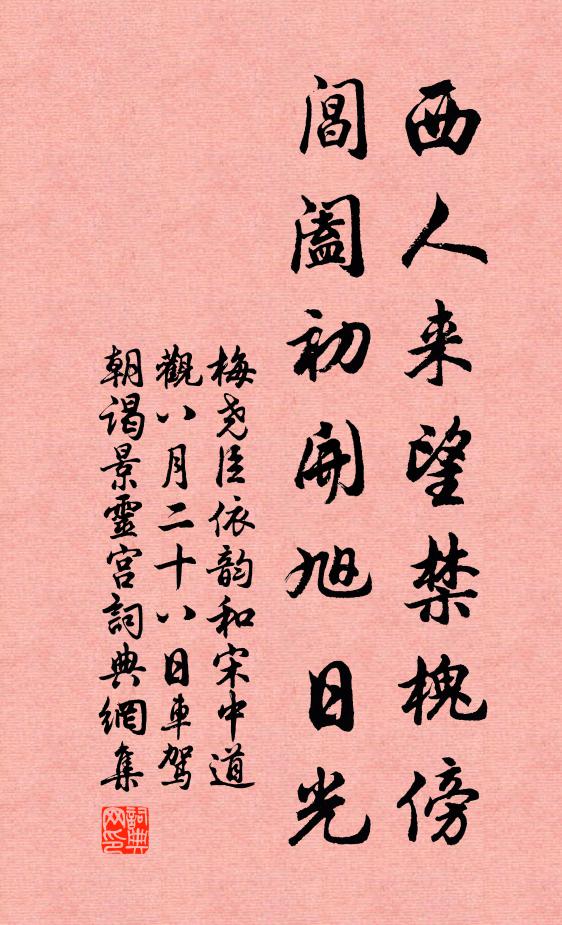 西人来望禁槐傍
阊阖初開旭日光
梅尧臣依韵和宋中道
觀八月二十八日車駕
朝谒景靈宫詞典網集
詞典网印